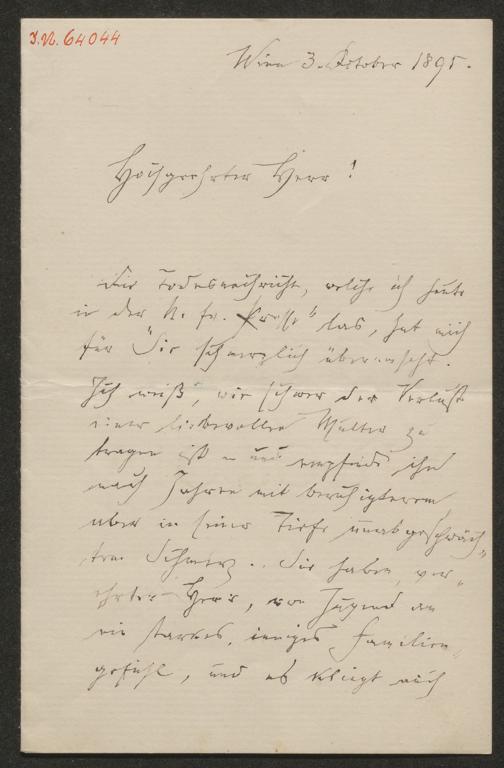 I.N. 64044
Wien 3. October 1895.
Hochgeehrter Herr!
Die Todesnachricht, welche ich heute
in der N. fr. Presse" las, hat mich
für Sie schmerzlich überrascht.
Ich weiß, wie schwer der Verlust
einer liebevollen Mutter zu
tragen ist und empfinde ihn
nach Jahren mit beruhigterem
aber in seiner Tiefe unabgeschwäch"
tem Schmerz. Sie haben, ver"
ehrter Herr, von Jugend an
ein starkes, inniges Familien"
gefühl, und es klingt auch